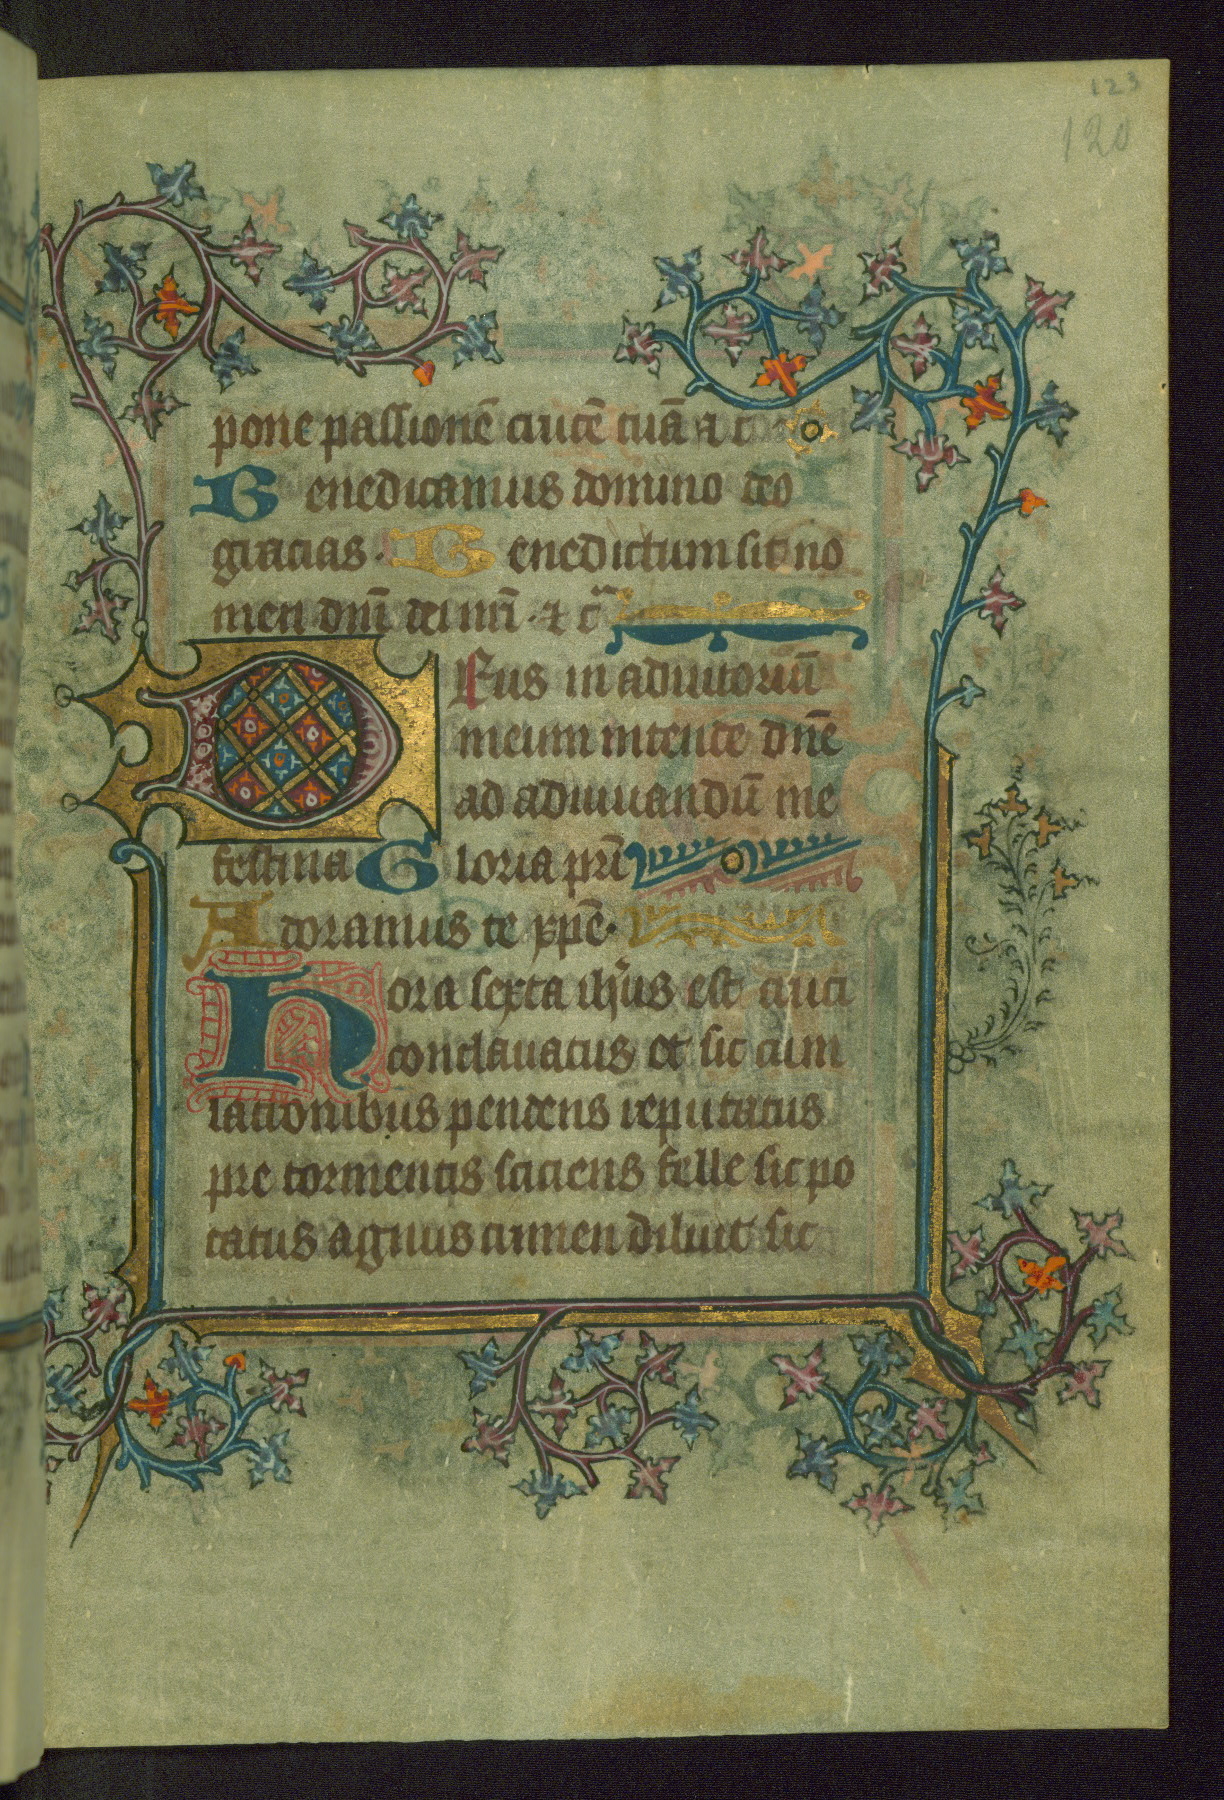 123
120
pone passionē crucē tuā ⁊ c
Benedicamus domino deo
gracias · Benedictum sit no
men dn̄i dei nr̄i · ⁊ c̄
Deus in adiutoriū
meum intende dn̄e
ad adiuuandū me
festina Gloria pr̄i
Adoramus te xp̄e ·
Hora sexta ih̄us est cruci
conclauatus et sic cum
lationibus pendens reputatus
pre tormentis sciciens felle sic po
tatus agnus crimen diluit sic